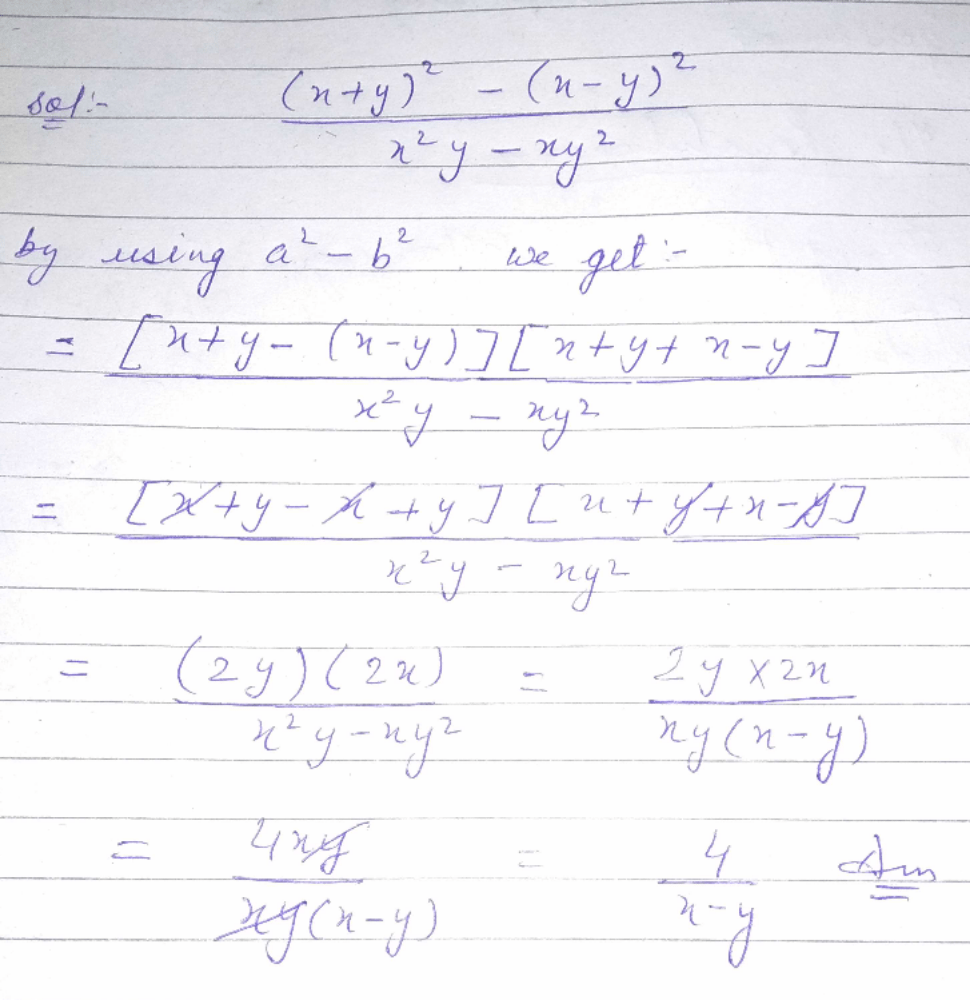 sol:- ((x+y)² - (x-y)²)/(x²y - xy²)
by using a² - b² we get :-
= ([x+y- (x-y)][x+y+ x-y])/(x²y - xy²)
= ([x+y-x+y] [x+y+x-y])/(x²y - xy²)
= ((2y)(2x))/(x²y-xy²) = (2y×2x)/(xy(x-y))
= (4xy)/(xy(x-y)) = 4/(x-y) Ans